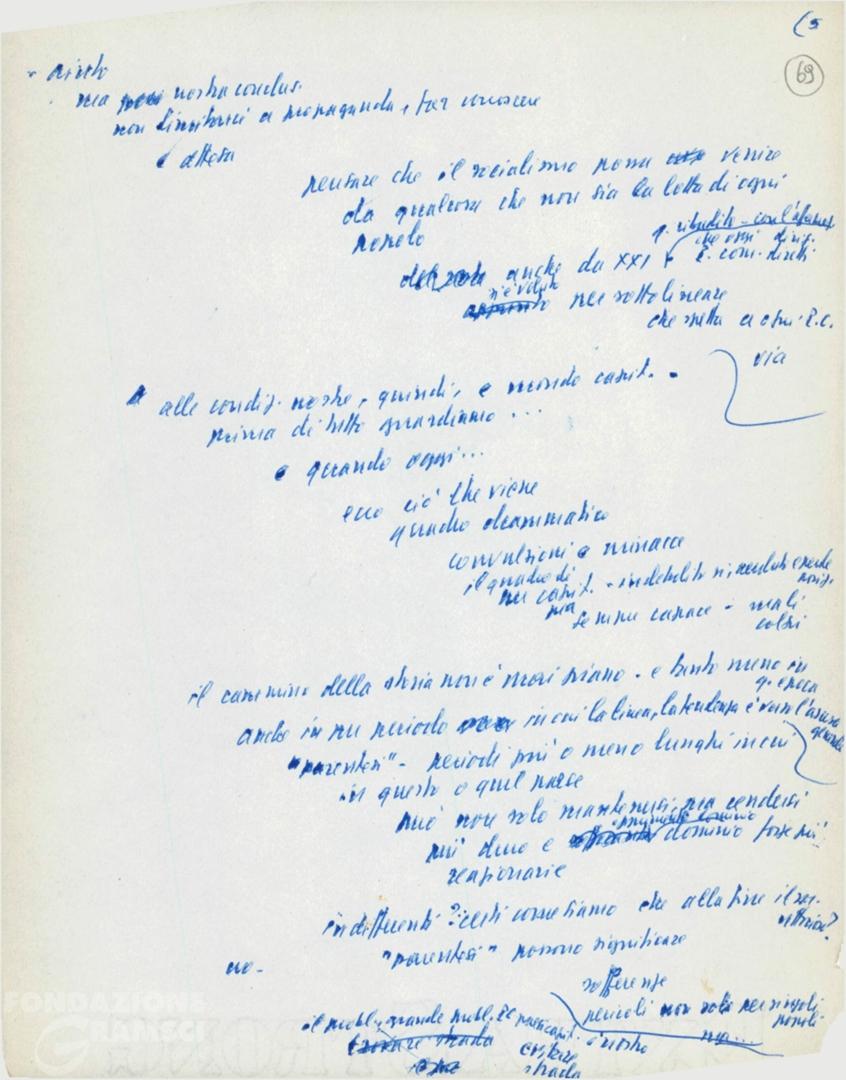 (5
69
- aiuto
ma nostra conclus.
non limitarci a propaganda, far conoscere
e attesa
pensare che il socialismo possa venire
da qualcosa che non sia la lotta di ogni
popolo
q. ribadito - con
che ogni
P. com. diretti
anche da XXI
si è voluto
sottolineare
che spetta a ogni P.C.
via
alle condiz. nostre, quindi, e mondo capit.
prima di tutto guardiamo...
e quando oggi...
ecco ciò che viene
quadro drammatico
convulsioni e minacce
il quadro di
un capit. - indebolito
ma
sempre capace -
colpi
il cammino della storia non è mai piano - e tanto meno in
q. epoca
anche in un periodo in cui la linea, la tendenza è
generale
"parentesi" - periodi più o meno lunghi in cui
in questo o quel paese
può non solo mantenersi, ma rendersi
più duro e dominio forze più
reazionarie
indifferenti? certi come siamo che alla fine il soc.
vittorioso?
"parentesi" possono significare
no -
sofferenze
pericoli non solo per singoli
popoli
ma...
il probl., grande probl. PC paesi capit.
trovare strada
è nostro
evitare
strada
FONDAZIONE
GRAMSCI